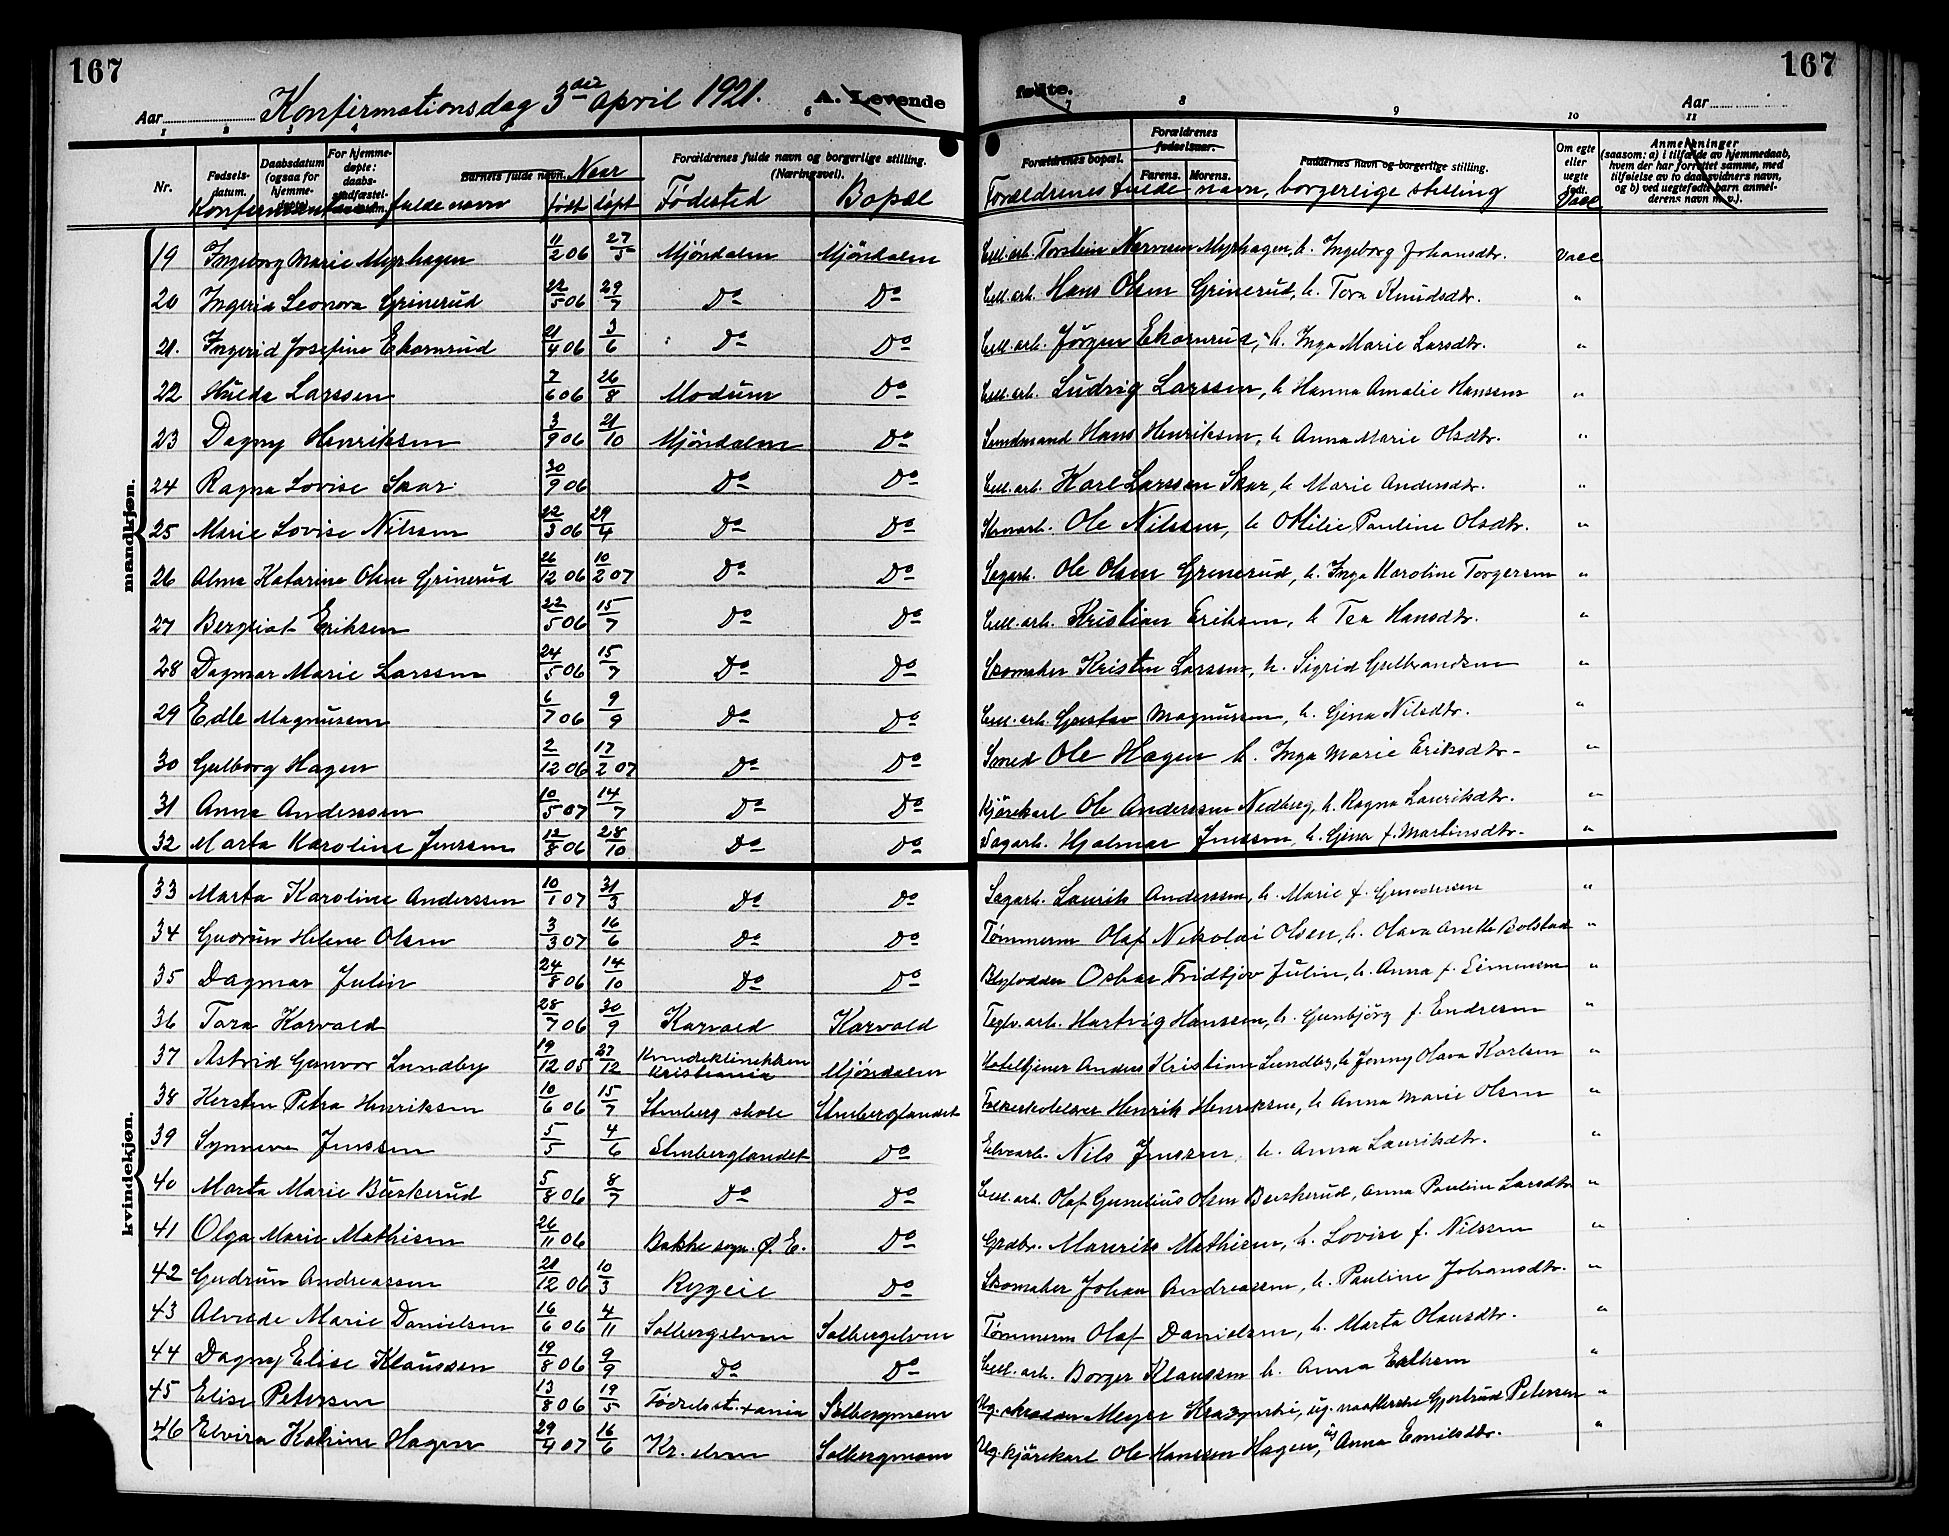 167
167
Konfirmationsdag 3die april 1921.
A. Levende
fødte.
Aar
Aar
1 2 3 4 5 6 7 8 9 10 11
Nr. Fødsels-datum. Daabsdatum (ogsaa for hjemme-døpte). For hjemme-døpte: daabs-stadfæstel-sens datum. Barnets fulde navn. Forældrenes fulde navn og borgerlige stilling. (Næringsvei). Forældrenes bopæl. Forældrenes fødselsaar. Farens. Morens. Faddernes navn og borgerlige stilling. Om egte eller uegte født. Anmerkninger (saasom: a) i tilfælde av hjemmedaab, hvem der har forrettet samme, med tilføielse av to daabsvidners navn, og b) ved uegtefødt barn anmel-derens navn m. v.).
Konfirmantens fulde navn Naar født døpt Fødested Bopæl Forældrenes fulde navn, borgerlige stilling Vacc
mandkjøn.
19 Ingeborg Marie Myrhagen 11/2 06 27/5 Mjöndalen Mjöndalen Cell. arb. Torstein Myrhagen, h. Ingeborg Johansdtr. Vacc
20 Ingeria Leonora Grinerud 22/5 06 29/7 Do Do Cell. arb. Hans Olsen Grinerud, h. Tora Knudsdtr. "
21. Ingerid Josefine Ekornrud 21/4 06 3/6 Do Do Cell. arb. Jörgen Ekornrud, h. Inga Marie Larsdtr. "
22 Hulda Larssen 7/6 06 26/8 Modum Do Cell. arb. Ludvig Larssen, h Hanna Amalie Hanssen "
23 Dagny Henriksen 3/9 06 21/10 Mjöndalen Do Hans Henriksen, h Anna Marie Olsdtr. "
24 Ragna Lovise Skar 30/9 06 Do Do Cell. arb. Karl Larssen Skar, h Marie Andersdtr. "
25 Marie Lovise Nilssen 22/3 06 29/4 Do Do Ole Nilssen, h Otilie Pauline Olsdtr. "
26 Alma Katarina Olsen Grinerud 26/12 06 10/2 07 Do Do Sagarb. Ole Olsen Grinerud, h. Inga Karoline Torgersen "
27 Bergliot Eriksen 22/5 06 15/7 Do Do Cell. arb. Kristian Eriksen, h Tea Hansdtr. "
28 Dagmar Marie Larssen 24/5 06 15/7 Do Do Skomaker Kristen Larssen, h. Sigrid Gulbrandsen "
29 Edle Magnusen 6/7 06 9/9 Do Do Cell. arb Gustav Magnussen, h. Gina Nilsdtr. "
30 Gulborg Hagen 2/12 06 17/2 07 Do Do Smed Ole Hagen h. Inga Marie Eriksdtr "
31 Anna Anderssen 10/5 07 14/7 Do Do Kjörekarl Ole Anderssen Nedberg, h. Ragna Lauritsdtr. "
32 Marta Karoline Jenssen 12/8 06 28/10 Do Do Sagarb. Hjalmar Jenssen, h. Gina f. Martinsdtr. "
kvindekjøn.
33 Marta Karoline Anderssen 10/1 07 31/3 Do Do Sagarb. Laurits Anderssen, h. Marie f. Gundersen "
34 Gudrun Helene Olsen 3/3 07 16/6 Do Do Tømmerm Olaf Nikolai Olsen, h. Olava Anette Bolstad "
35 Dagmar Julin 24/8 06 14/10 Do Do Oskar Fridtjov Julin, h. Anna f. Simensen "
36 Tora Korvald 28/7 06 30/9 Korvald Korvald Teglv. arb. Hartvig Hanssen, h. Gunbjörg f. Endresen "
37 Astrid Gunvor Lundby 19/12 05 27/12 Kvindeklinikken Kristiania Mjöndalen Hoteltjener Anders Kristian Lundby, h Jenny Olava Karlsen "
38 Kersten Petra Henriksen 10/6 06 15/7 Stenberg skole Stenberglandet Henrik Henriksen, h Anna Marie Olsen "
39 Synneva Jenssen 5/5 4/6 Stenberglandet Do Nils Jenssen, h. Anna Lauritsdtr. "
40 Marta Marie Buskerud 5/8 06 8/7 Do Do Cell. arb. Olaf Gunelius Olsen Buskerud, Anna Pauline Larsdtr "
41 Olga Marie Mathisen 26/11 06 Bakke sogn. Ø. E. Do Grdbr. Maurits Mathisen, h. Lovise f. Nilssen "
42 Gudrun Andreassen 21/12 06 10/3 Ryggeie Do Skomaker Johan Andreassen, h. Pauline Johansdtr. "
43 Alvilde Marie Danielsen 16/6 06 4/11 Solbergelven Solbergelven Tömmerm Olaf Danielsen, h. Marta Olausdtr. "
44 Dagny Elise Klaussen 19/8 06 9/9 Do Do Cell. arb. Borger Klaussen h. Anna "
45 Elise Petersen 13/8 06 19/5 Födselsst. xania Solbergmoen Ug. Meyer ug. Gjertrud Petersen "
46 Elvira Katrine Hagen 29/4 07 16/6 Kr. elven Solbergmoen Ug. kjörekarl Ole Hanssen Hagen, ug Anna Emilsdtr. "